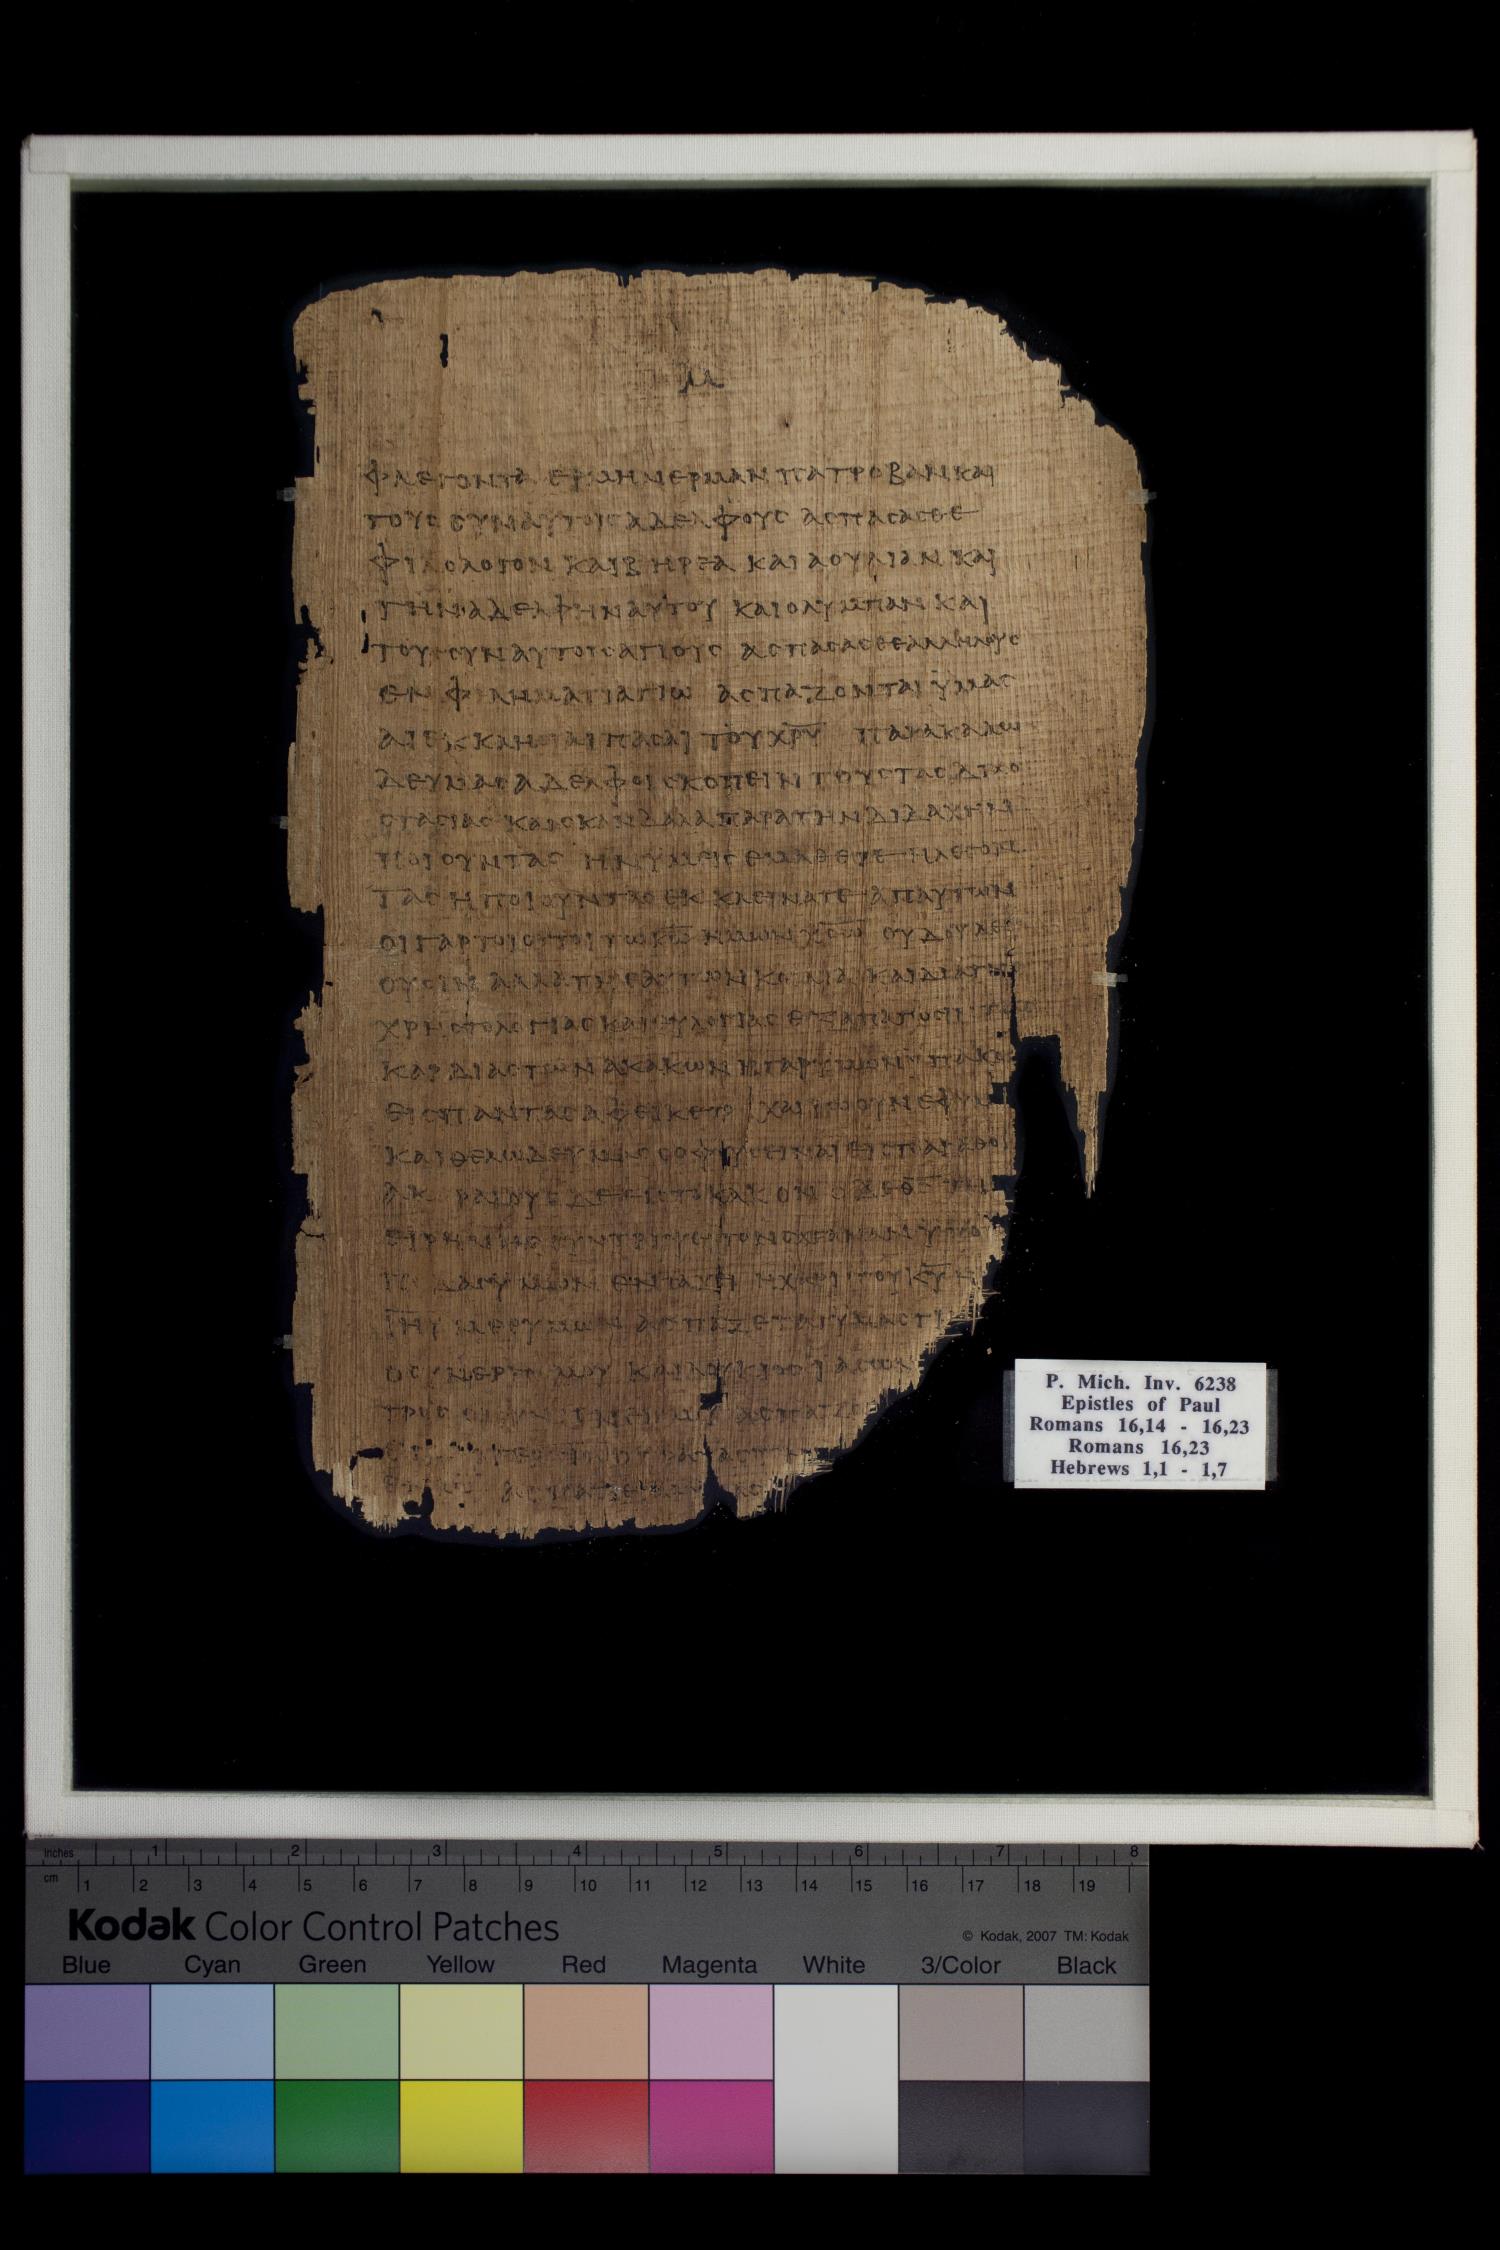 μ
φλεγοντα ερμην ερμαν πατροβαν και
τους συν αυτοις αδελφους ασπασασθε
φιλολογον και βηρεα και αουλιαν και
την αδελφην αυτου και ολυμπαν και
τους συν αυτοις αγιους ασπασασθε αλληλους
εν φιληματι αγιω ασπαζονται ϋμας
αι εκκλησιαι πασαι του χρυ παρακαλω
δε υμας αδελφοι σκοπειν τους τας διχο
στασιας και σκανδαλα παρα την διδαχην
ποιουντας ην υμεις εμαθετε η λεγον
τας η ποιουντας εκκλεινατε απ αυτων
οι γαρ τοιουτοι τω κω ημων χρω ου δουλευ
ουσιν αλλα τη εαυτων κοιλια και δια της
χρηστολογιας και ευλογιας εξαπατωσι τας
καρδιας των ακακων η γαρ υμων υπακο
εις παντας αφεικετο χαιρω ουν εφ υμ
και θελω δε υμας σοφους ειναι εις το αγαθο
ακεραιους δε εις το κακον ο δε θς της
ειρηνης συντριψει τον σαταναν υπο
ποδας υμων εν ταχει η χαρις του κυ η
ιηυ μεθ υμων ασπαζεται υμας τι
ο συνεργος μου και λουκιος ιασων
ασπαζε
P. Mich. Inv. 6238
Epistles of Paul
Romans 16,14 - 16,23
Romans 16,23
Hebrews 1,1 - 1,7
inches 1 2 3 4 5 6 7 8
cm 1 2 3 4 5 6 7 8 9 10 11 12 13 14 15 16 17 18 19
Kodak Color Control Patches
© Kodak, 2007 TM: Kodak
Blue Cyan Green Yellow Red Magenta White 3/Color Black